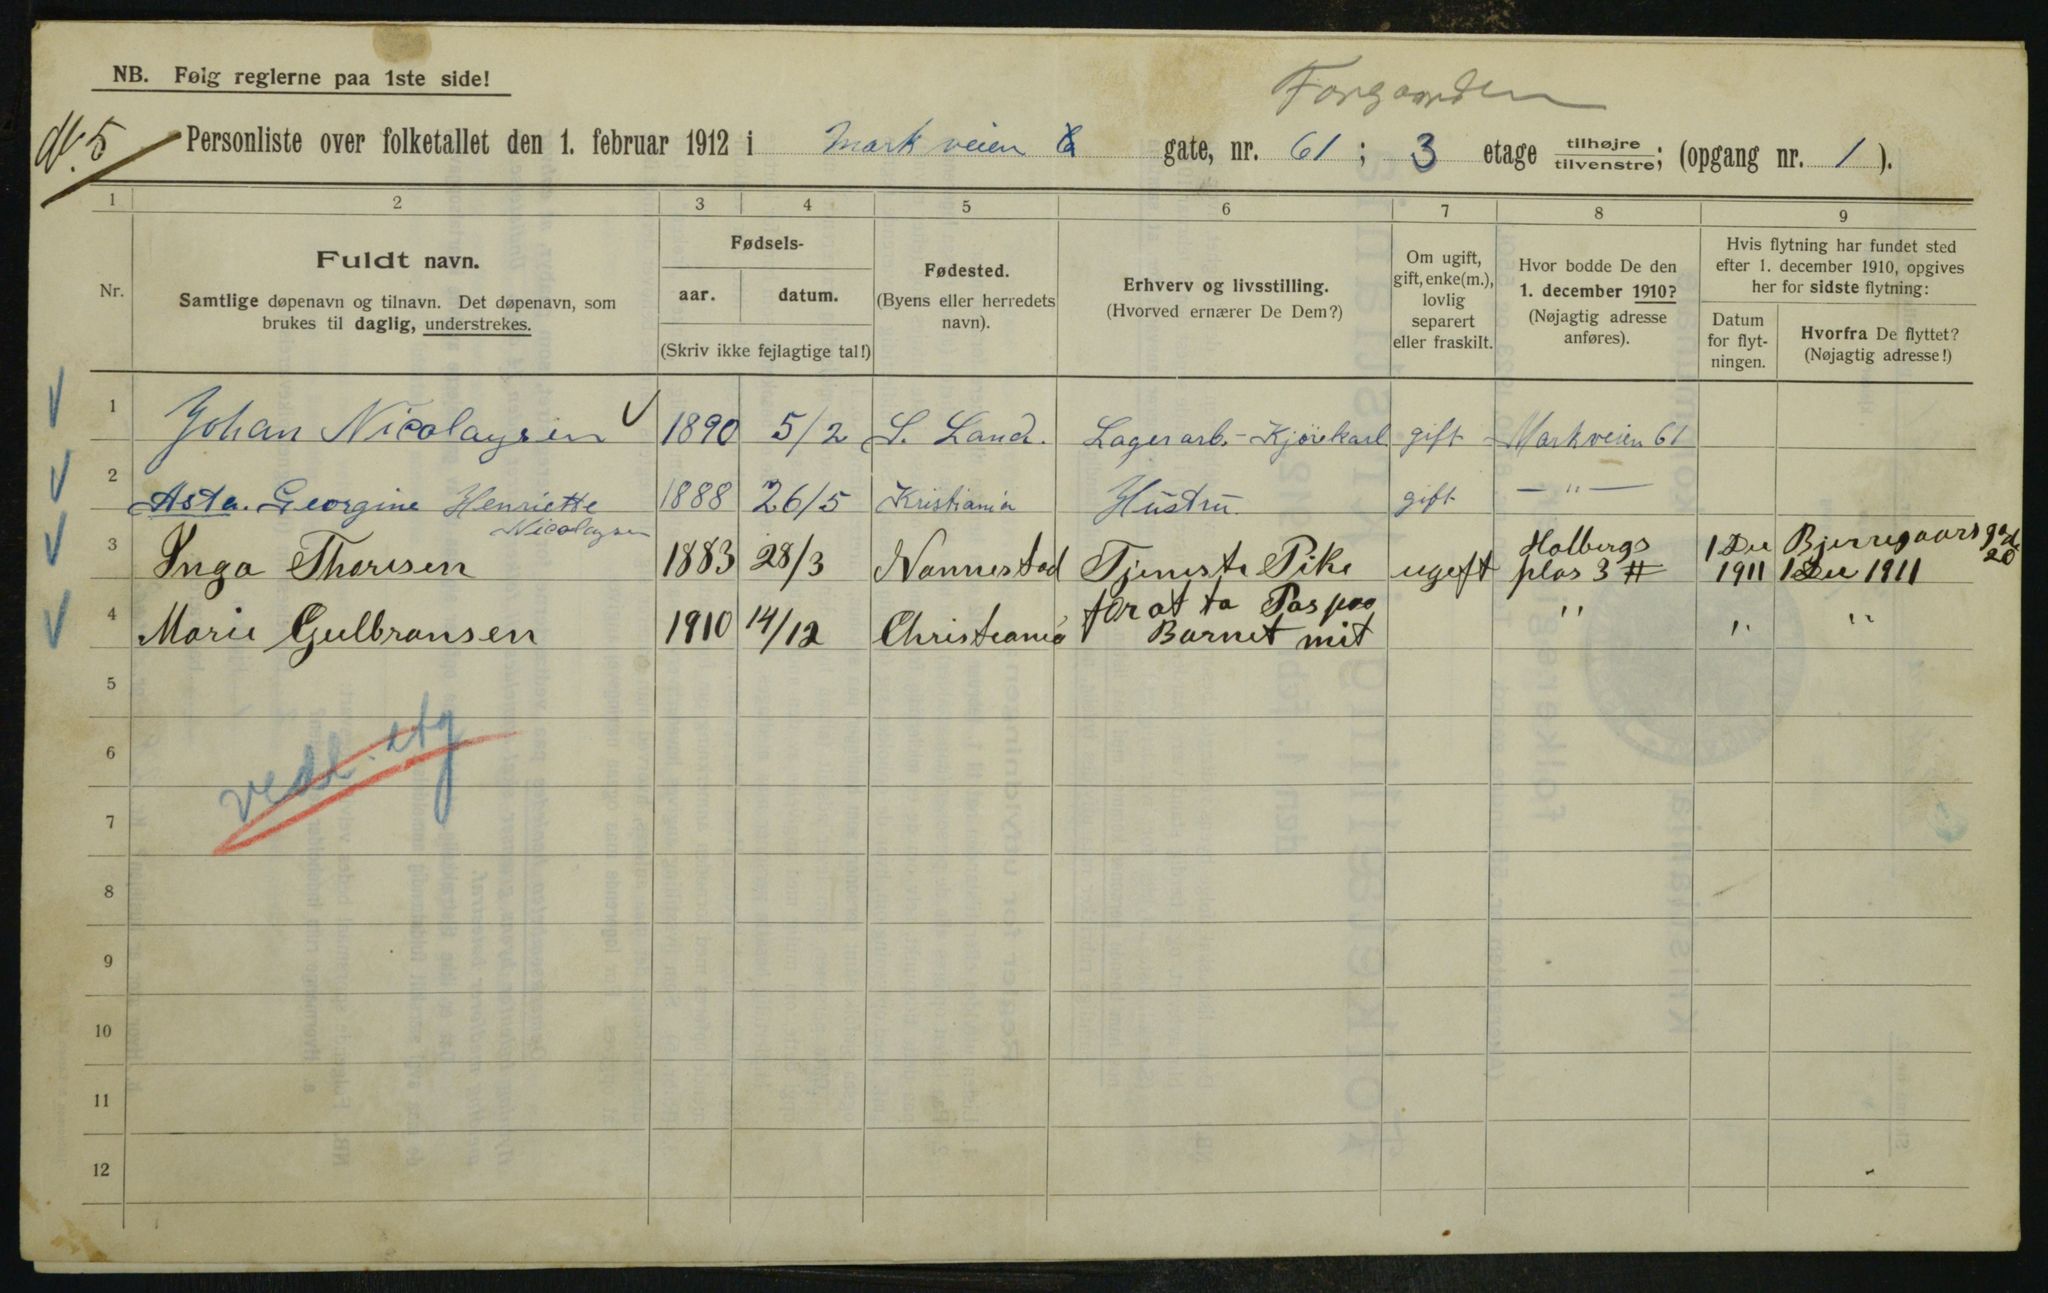 NB. Følg reglerne paa 1ste side!
Forgaarden
No. 5
Personliste over folketallet den 1. februar 1912 i Markveien gate, nr. 61; 3 etage tilhøjre tilvenstre; (opgang nr. 1).
1 2 3 4 5 6 7 8 9
Nr.
Fuldt navn.
Samtlige døpenavn og tilnavn. Det døpenavn, som
brukes til daglig, understrekes.
Fødsels-
aar. datum.
(Skriv ikke fejlagtige tal!)
Fødested.
(Byens eller herredets
navn).
Erhverv og livsstilling.
(Hvorved ernærer De Dem?)
Om ugift,
gift, enke(m.),
lovlig
separert
eller fraskilt.
Hvor bodde De den
1. december 1910?
(Nøjagtig adresse
anføres).
Hvis flytning har fundet sted
efter 1. december 1910, opgives
her for sidste flytning:
Datum
for flyt-
ningen.
Hvorfra De flyttet?
(Nøjagtig adresse!)
1 Johan Nicolaysen 1890 5/2 S. Land. Lagerarb.- Kjørekarl gift Markveien 61
2 Asta. Georgine Henriette Nicolaysen 1888 26/5 Kristiania Hustru gift — " —
3 Inga Thoresen 1883 28/3 Nannestad Tjeneste Pike ugeft Holbergs plas 3 1 Des 1911 Bjerregaarsgad 20 1 Des 1911
4 Marie Gulbransen 1910 14/12 Christiania for at ta Pas paa Barnet mit " " "
5
6
vedl. etg
7
8
9
10
11
12